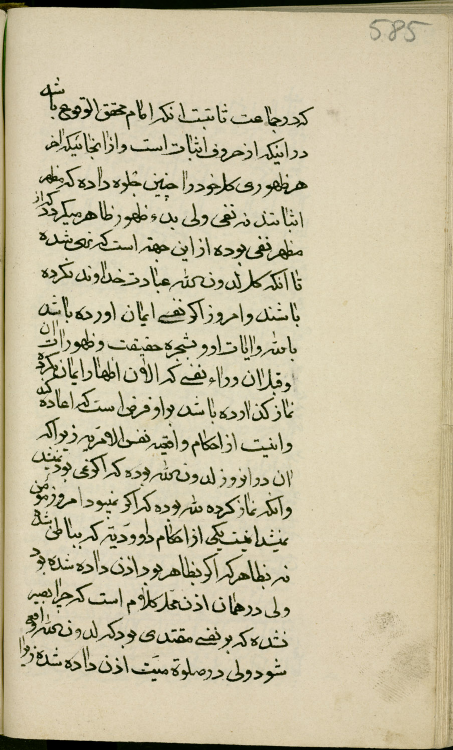 585
که در جماعت ثابتست انکه امام محقق الوقوع باشد
در اینکه از حروف اثبات است و از انجائیکه اخر
هر ظهوری کل خود را چنین جلوه داده که مظهر
اثباتند نه نفی ولی بدء ظهور ظاهر میگردد که از
مظهر نفی بوده از این جهة است که نهی شده
تا انکه کل لدون الله عبادت خداوند نکرده
باشند و امروز اگر نفسی ایمان اورده باشد
بالله و ایات او و شجره حقیقت و ظهورات ان
و قبل ان وراء نفسی که الان اظهار ایمان نکرده
نماز کذارده باشد بر او فرض است که اعاده کند
و اینست از احکام واقعیه نفس الامریه زیرا که
ان در انروز لدون الله بوده که اگر نمی بود
و انکه نماز کرده لله بوده که اگر نمیبود امروز مؤمن
نمیشد اینست یکی از احکام داوودیه که بباطن شده
نه بظاهر که اگر بظاهر بود اذن داده شده بود
ولی در همان اذن محل کلام است که چرا بصیر
نشده که بر نفسی مقتدی بود که لدون الله واقع
شود ولی در صلوة میت اذن داده شده زیرا